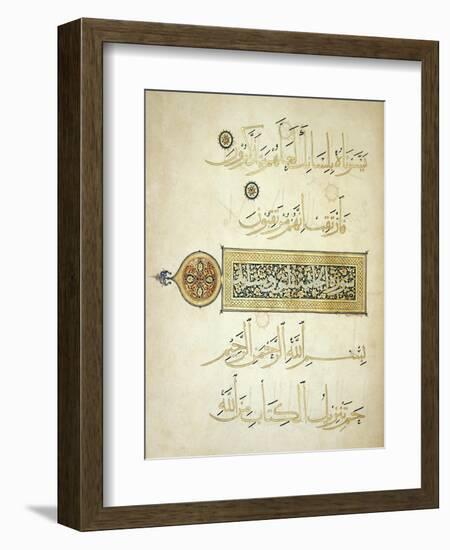 يسرناه بلسانك لعلهم يتذكرون
فارتقب إنهم مرتقبون
بسم الله الرحمن الرحيم
حم تنزيل الكتاب من الله